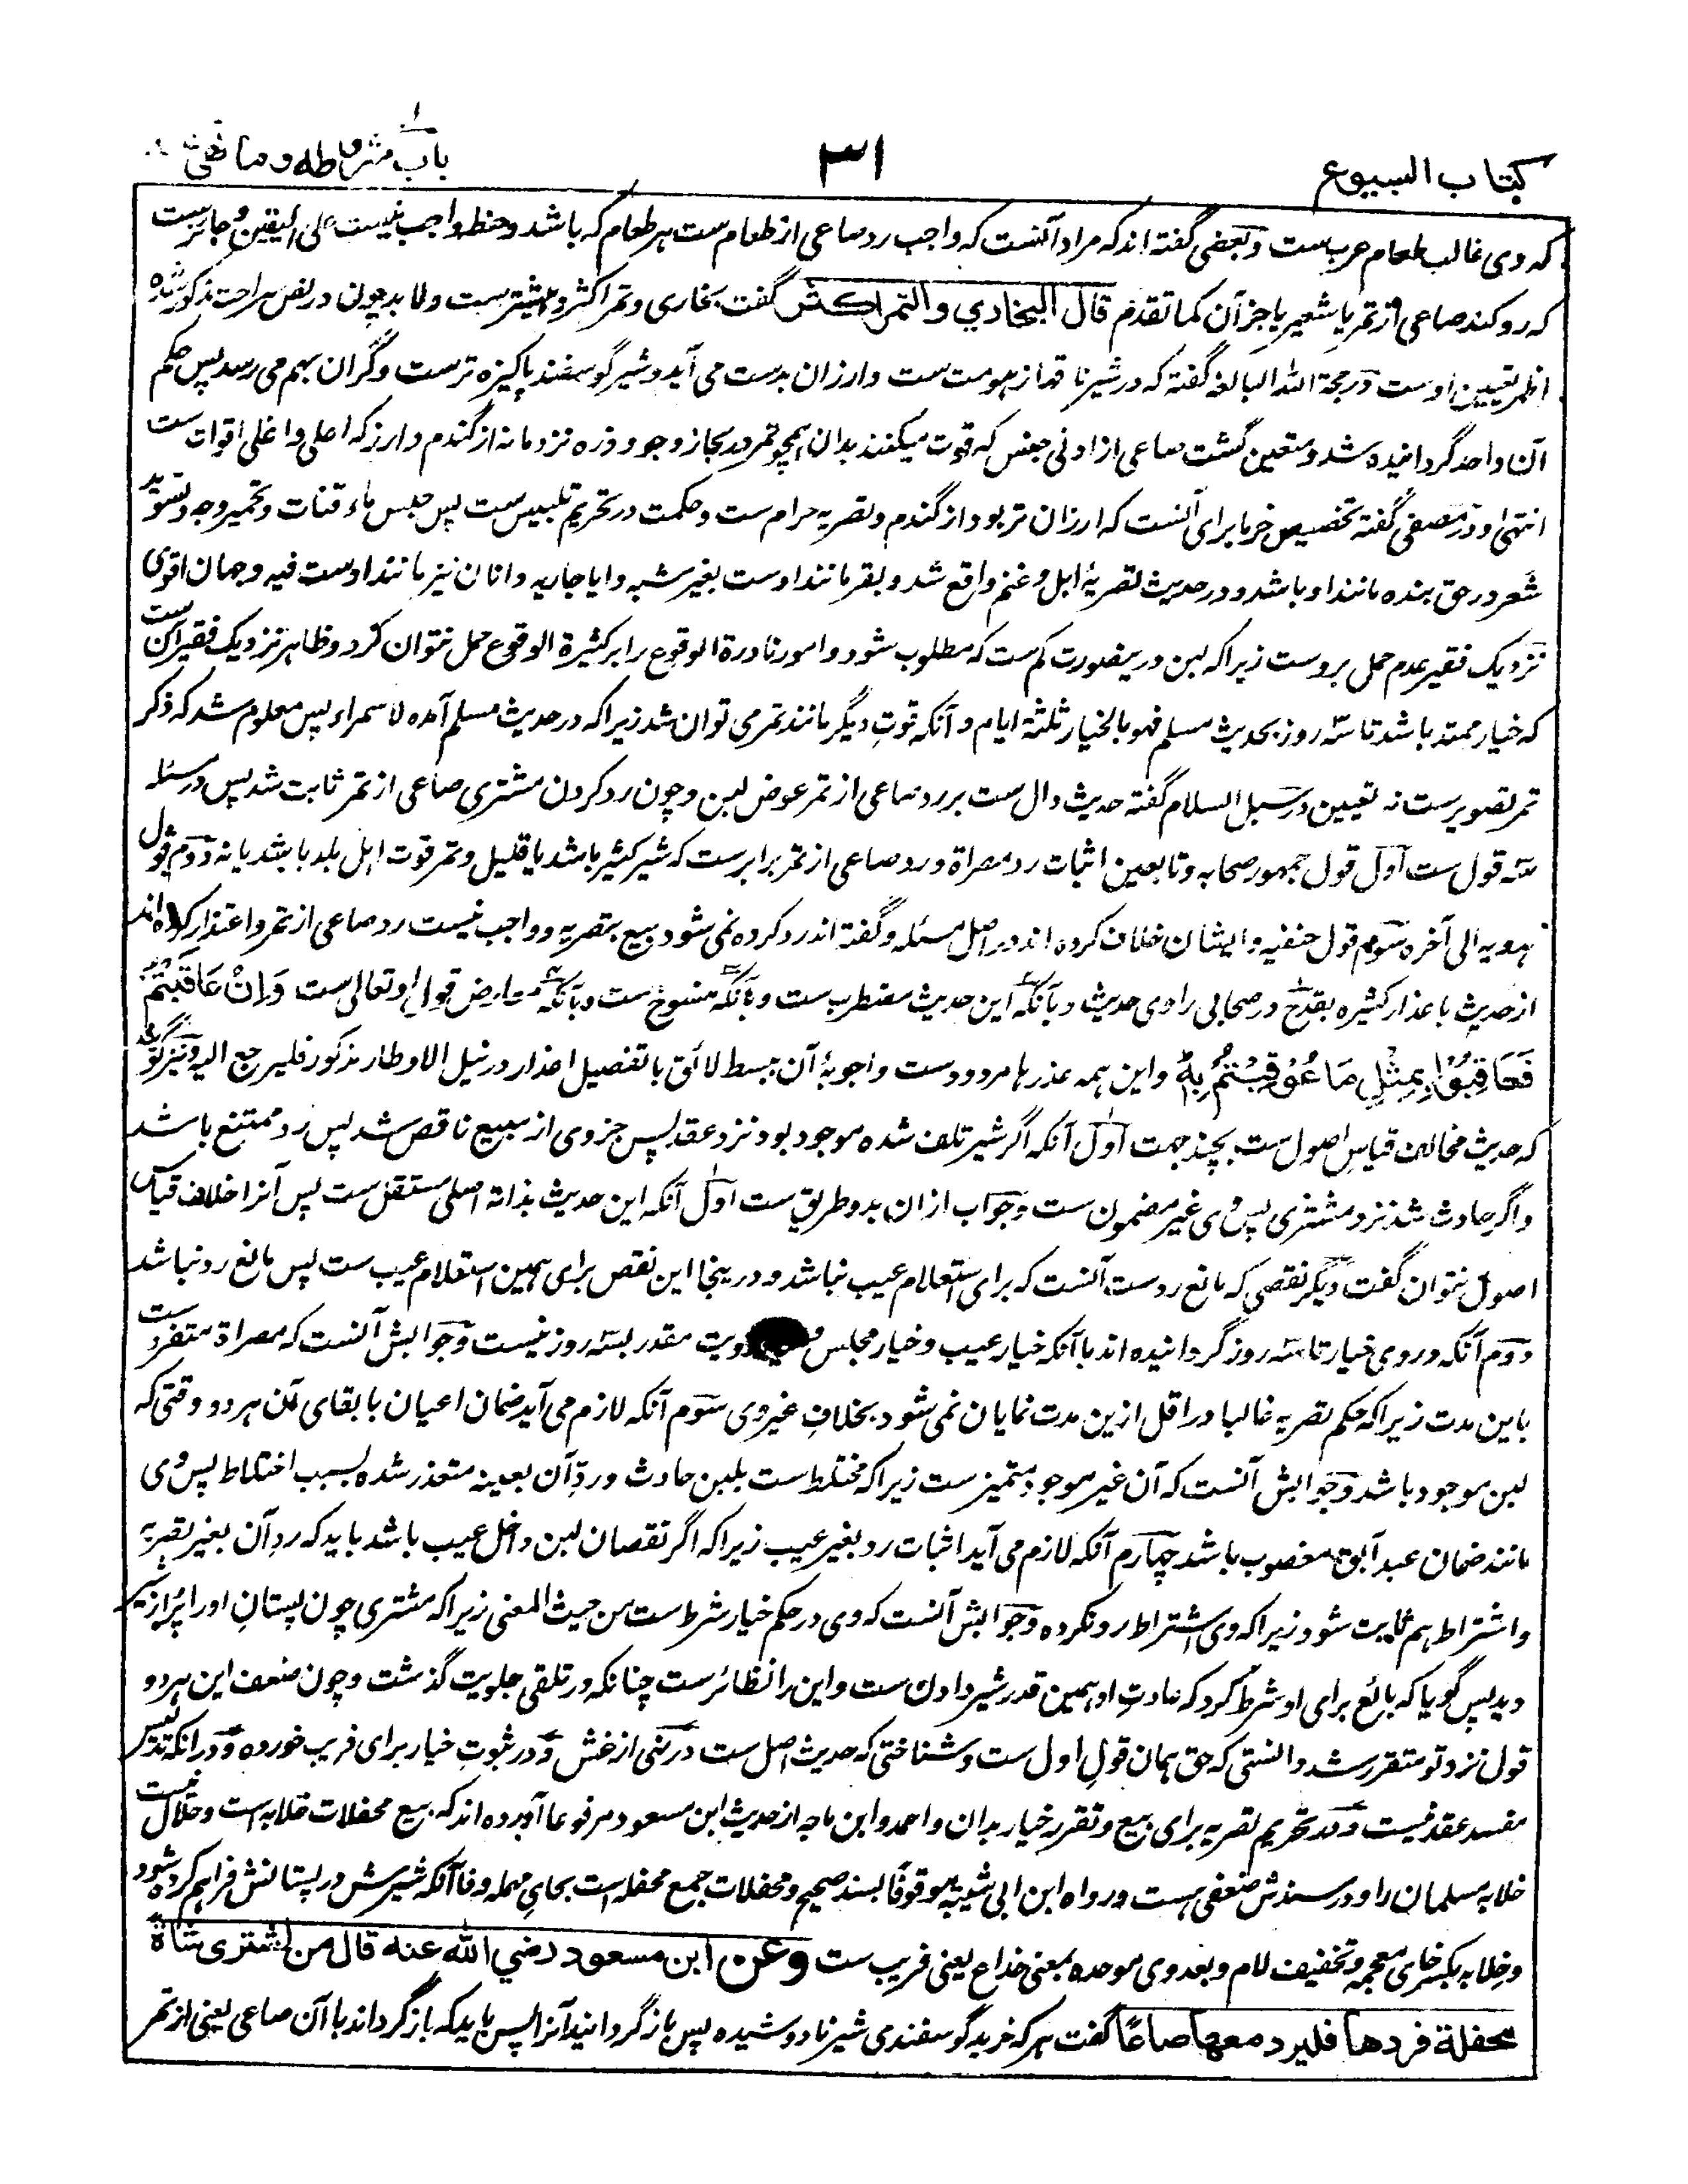 کتاب البیوع
۳۱
باب شروطه وما نهی
که وی غالب طعام عرب ست و بعضی گفته اند که مراد آنست که واجب رد صاعی از طعام ست هر طعام که باشد و حنطه واجب نیست علی الیقین و جائز ست
که رد کند صاعی از تمر یا شعیر یا جز آن کما تقدم قال البخاري والتمر اکثر گفت بخاری و تمر اکثر و بیشتر ست و لابد چون در نفس صراحت مذکور شده
اظهر تعیین اوست در حجة الله البالغه گفته که در شیر ناقه از هومت ست و ارزان بدست می آید و شیر گوسفند پاکیزه ترست و گران بهم می رسد پس حکم
آن واحد گردانیده شد و متعین گشت صاعی از ادنی جنس که قوت میکنند بدان همچو تمر در حجاز و جو و ذره نزد ما نه از گندم و ارز که اعلی و اغلی اقوات ست
انتهی و در مصفی گفته تخصیص خرما برای آنست که ارزان تر بود از گندم و تصریه حرام ست و حکمت در تحریم تلبیس ست پس حبس ماء قنات و تحمیر وجه و تسوید
شعر در حق بنده مانند او باشد و در حدیث تصریۀ ابل و غنم واقع شد و بقر مانند اوست بغیر شبه و ایا جاریه و اتان نیز مانند اوست فیه وجهان اقوی
نزدیک فقیر عدم حمل بروست زیرا که لبن درینصورت کم ست که مطلوب شود و امور نادرة الوقوع را بر کثیرة الوقوع حمل نتوان کرد و ظاهر نزدیک فقیر آن ست
که خیار ممتد باشد تا سه روز بحدیث مسلم فهو بالخیار ثلثة ایام و آنکه قوت دیگر مانند تمر می توان شد زیرا که در حدیث مسلم آمده لا سمراء پس معلوم شد که ذکر
تمر تصویر ست نه تعیین و در سبل السلام گفته حدیث دال ست بر رد صاعی از تمر عوض لبن و چون رد کردن مشتری صاعی از تمر ثابت شد پس در مسئله
سه قول ست اول قول جمهور صحابه و تابعین اثبات رد مصراة و رد صاعی از تمر برابر ست که شیر کثیر باشد یا قلیل و تمر قوت اهل بلد باشد یا نه دوم قول
هدویه الی آخره سوم قول حنفیه و ایشان خلاف کرده اند در اصل مسئله و گفته اند رد کرده نمی شود بیع بتصریه و واجب نیست رد صاعی از تمر و اعتذار کرده اند
از حدیث باعذار کثیره بقدح در صحابی راوی حدیث و بآنکه این حدیث مضطرب ست و بآنکه منسوخ ست و بآنکه معارض قول او تعالی ست وَإِنْ عَاقَبْتُمْ
فَعَاقِبُوْا بِمِثْلِ مَا عُوْقِبْتُمْ بِهِ و این همه عذرها مردود ست و اجوبۀ آن ببسط لائق با تفصیل اعذار در نیل الاوطار مذکور فلیرجع الیه و نیز گویند
که حدیث مخالف قیاس اصول ست بچند جهت اول آنکه اگر شیر تلف شده موجود بود نزد عقد پس جزوی از مبیع ناقص شد پس رد ممتنع باشد
و اگر حادث شد نزد مشتری پس وی غیر مضمون ست و جواب ازان بدو طریق ست اول آنکه این حدیث بذاته اصلی مستقل ست پس آنرا خلاف قیاس
اصول نتوان گفت دیگر نقصی که مانع رد ست آنست که برای استعلام عیب نباشد و درینجا این نقص برای همین استعلام عیب ست پس مانع رد نباشد
دوم آنکه در وی خیار تا سه روز گردانیده اند با آنکه خیار عیب و خیار مجلس و رویت مقدر بسه روز نیست و جوابش آنست که مصراة متفرد ست
باین مدت زیرا که حکم تصریه غالبا در اقل ازین مدت نمایان نمی شود بخلاف غیر وی سوم آنکه لازم می آید ضمان اعیان با بقای آن هر دو وقتی که
لبن موجود باشد و جوابش آنست که آن غیر موجود متمیز ست زیرا که مختلط ست بلبن حادث و رد آن بعینه متعذر شده بسبب اختلاط پس وی
مانند ضمان عبد آبق مغصوب باشد چهارم آنکه لازم می آید اثبات رد بغیر عیب زیرا که اگر نقصان لبن داخل عیب باشد باید که رد آن بغیر تصریه
و اشتراط هم ثابت شود زیرا که وی اشتراط رد نکرده و جوابش آنست که وی در حکم خیار شرط ست من حیث المعنی زیرا که مشتری چون پستان او را پر از شیر
دید پس گویا که بائع برای او شرط کرد که عادت او همین قدر شیر دادن ست و این را نظائر ست چنانکه در تلقی جلوبت گذشت و چون ضعف این هر دو
قول نزد تو متقرر شد دانستی که حق همان قول اول ست و شناختی که حدیث اصل ست در نهی از غش و در ثبوت خیار برای فریب خورده و در آنکه تدلیس
مفسد عقد نیست و در تحریم تصریه برای بیع و تقرر خیار بدان و احمد و ابن ماجه از حدیث ابن مسعود مرفوعا آورده اند که بیع محفلات خلابه است و حلال نیست
خلابه مسلمان را و در سندش ضعفی هست و رواه ابن ابی شیبه موقوفا بسند صحیح و محفلات جمع محفله است بحای مهمله و فا آنکه شیرش در پستانش فراهم کرده شود
و خلابه بکسر خای معجمه و تخفیف لام و بعد وی موحده بمعنی خداع یعنی فریب ست وعن ابن مسعود رضي الله عنه قال من اشترى شاة
محفلة فردها فليرد معها صاعًا گفت هر که خرید گوسفندی شیر نادوشیده پس بازگردانید آنرا پس باید که بازگرداند با آن صاعی یعنی از تمر